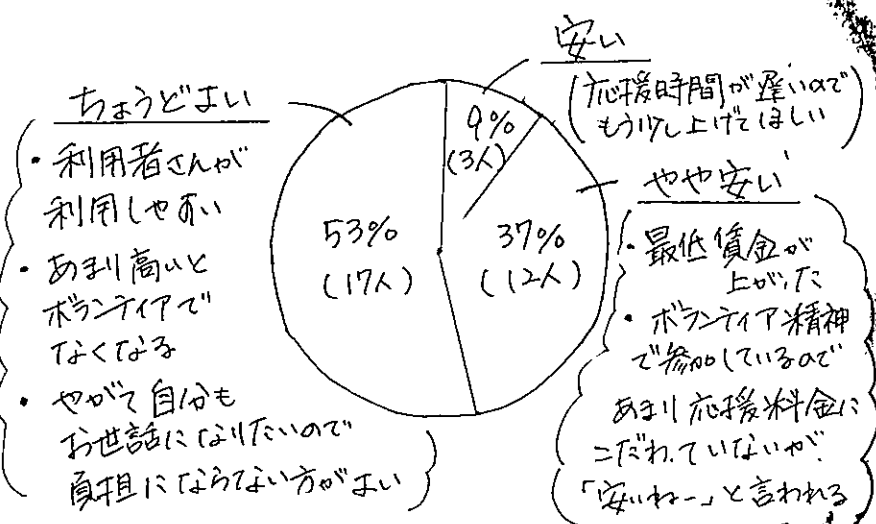 ちょうどよい
・利用者さんが
利用しやすい
・あまり高いと
ボランティアで
なくなる
・やがて自分も
お世話になりたいので
負担にならない方がよい
53%
(17人)
9%
(3人)
37%
(12人)
安い
(応援時間が遅いので
もう少し上げてほしい)
やや安い
・最低賃金が
上がった
・ボランティア精神
で参加しているので
あまり応援料金に
こだわっていないが
「安いねー」と言われる